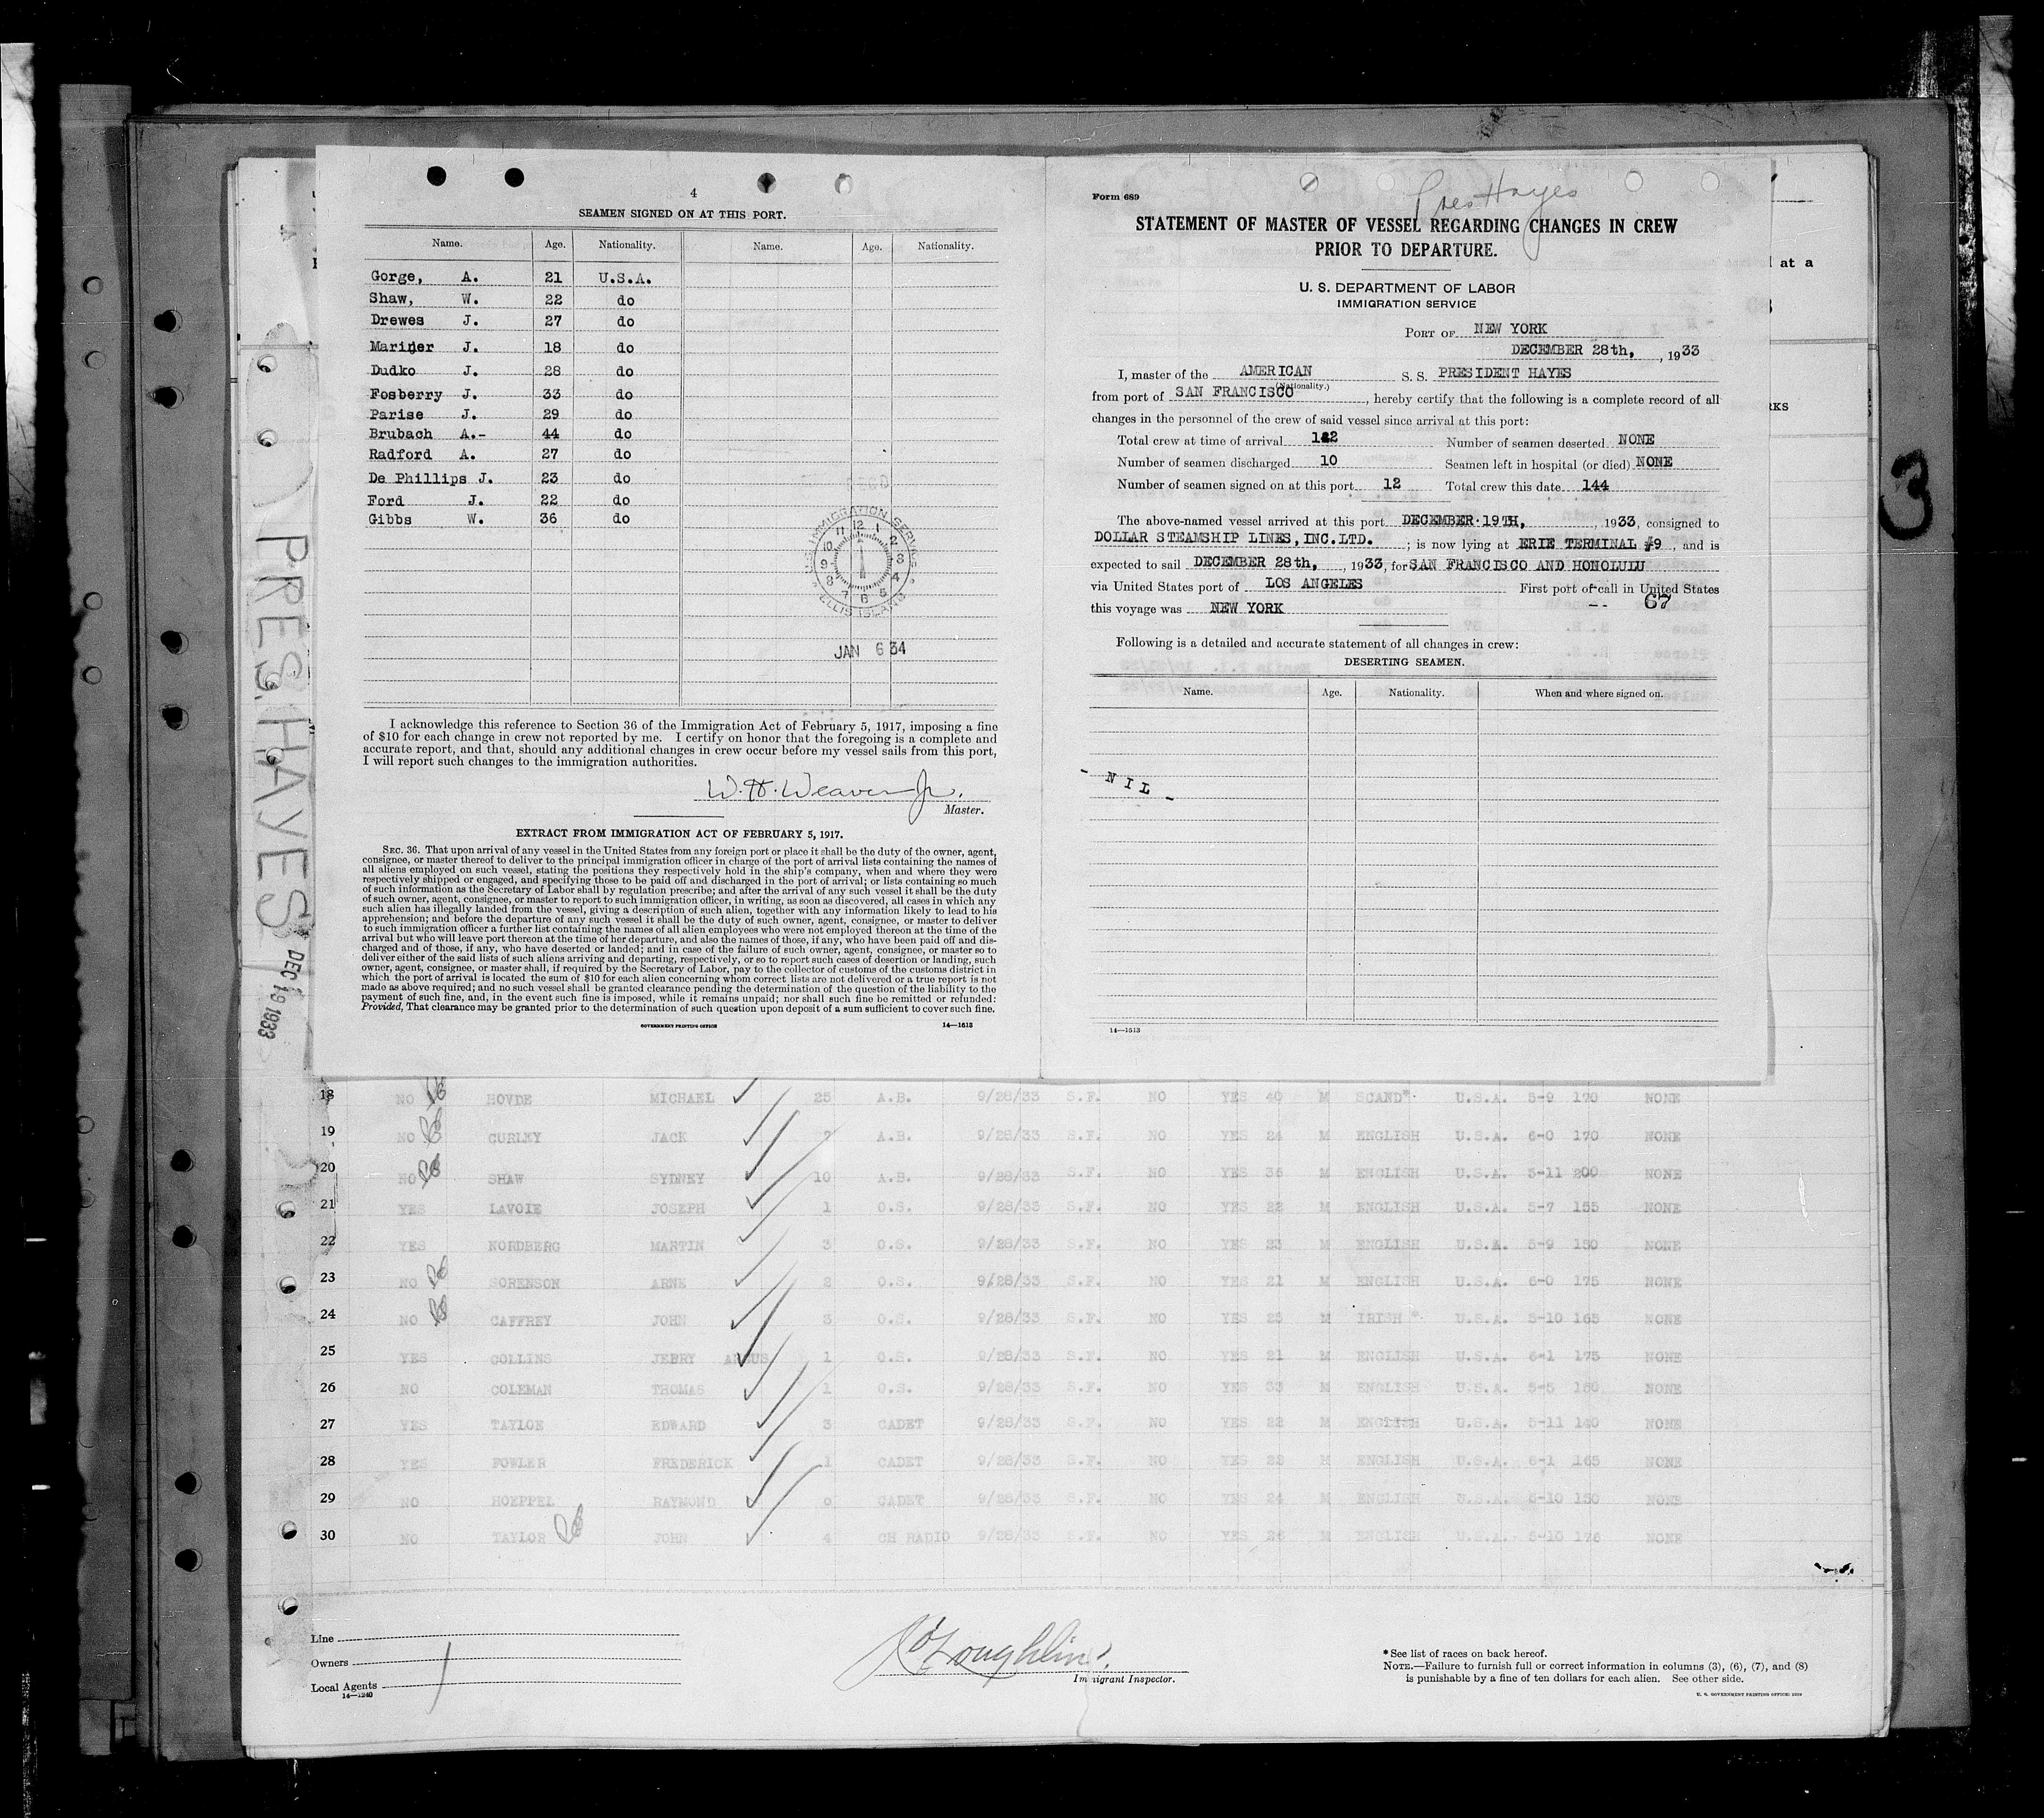 4
SEAMEN SIGNED ON AT THIS PORT.
Name. Age. Nationality. Name. Age. Nationality.
Gorge, A. 21 U.S.A.
Shaw, W. 22 do
Drewes J. 27 do
Mariner J. 18 do
Dudko J. 28 do
Fosberry J. 33 do
Parise J. 29 do
Brubach A.- 44 do
Radford A. 27 do
De Phillips J. 23 do
Ford J. 22 do
Gibbs W. 36 do
U.S. IMMIGRATION SERVICE
12 1 2 3 4 5 6 7 8 9 10 11
ELLIS ISLAND
JAN 6 34
I acknowledge this reference to Section 36 of the Immigration Act of February 5, 1917, imposing a fine
of $10 for each change in crew not reported by me. I certify on honor that the foregoing is a complete and
accurate report, and that, should any additional changes in crew occur before my vessel sails from this port,
I will report such changes to the immigration authorities.
W. H. Weaver Jr.
Master.
EXTRACT FROM IMMIGRATION ACT OF FEBRUARY 5, 1917.
SEC. 36. That upon arrival of any vessel in the United States from any foreign port or place it shall be the duty of the owner, agent,
consignee, or master thereof to deliver to the principal immigration officer in charge of the port of arrival lists containing the names of
all aliens employed on such vessel, stating the positions they respectively hold in the ship's company, when and where they were
respectively shipped or engaged, and specifying those to be paid off and discharged in the port of arrival; or lists containing so much
of such information as the Secretary of Labor shall by regulation prescribe; and after the arrival of any such vessel it shall be the duty
of such owner, agent, consignee, or master to report to such immigration officer, in writing, as soon as discovered, all cases in which any
such alien has illegally landed from the vessel, giving a description of such alien, together with any information likely to lead to his
apprehension; and before the departure of any such vessel it shall be the duty of such owner, agent, consignee, or master to deliver
to such immigration officer a further list containing the names of all alien employees who were not employed thereon at the time of the
arrival but who will leave port thereon at the time of her departure, and also the names of those, if any, who have been paid off and dis-
charged and of those, if any, who have deserted or landed; and in case of the failure of such owner, agent, consignee, or master so to
deliver either of the said lists of such aliens arriving and departing, respectively, or so to report such cases of desertion or landing, such
owner, agent, consignee, or master shall, if required by the Secretary of Labor, pay to the collector of customs of the customs district in
which the port of arrival is located the sum of $10 for each alien concerning whom correct lists are not delivered or a true report is not
made as above required; and no such vessel shall be granted clearance pending the determination of the question of the liability to the
payment of such fine, and, in the event such fine is imposed, while it remains unpaid; nor shall such fine be remitted or refunded:
Provided, That clearance may be granted prior to the determination of such question upon deposit of a sum sufficient to cover such fine.
GOVERNMENT PRINTING OFFICE 14—1513
Form 689
Pres Hayes
STATEMENT OF MASTER OF VESSEL REGARDING CHANGES IN CREW
PRIOR TO DEPARTURE.
U. S. DEPARTMENT OF LABOR
IMMIGRATION SERVICE
PORT OF NEW YORK
DECEMBER 28th, , 1933
I, master of the AMERICAN S. S. PRESIDENT HAYES
(Nationality.)
from port of SAN FRANCISCO , hereby certify that the following is a complete record of all
changes in the personnel of the crew of said vessel since arrival at this port:
Total crew at time of arrival 142 Number of seamen deserted NONE
Number of seamen discharged 10 Seamen left in hospital (or died) NONE
Number of seamen signed on at this port 12 Total crew this date 144
The above-named vessel arrived at this port DECEMBER 19TH, , 1933, consigned to
DOLLAR STEAMSHIP LINES,INC.LTD. ; is now lying at ERIE TERMINAL #9 , and is
expected to sail DECEMBER 28th, , 1933, for SAN FRANCISCO AND HONOLULU
via United States port of LOS ANGELES First port of call in United States
this voyage was NEW YORK -- 67
Following is a detailed and accurate statement of all changes in crew:
DESERTING SEAMEN.
Name. Age. Nationality. When and where signed on.
- N I L -
14—1513
at a
RKS
3
PRES. HAYES
DEC 19 1933
18 NO HOVDE MICHAEL 25 A.B. 9/28/33 S.F. NO YES 40 M SCAND* U.S.A. 5-9 170 NONE
19 NO CURLEY JACK 2 A.B. 9/28/33 S.F. NO YES 24 M ENGLISH U.S.A. 6-0 170 NONE
20 NO SHAW SYDNEY 10 A.B. 9/28/33 S.F. NO YES 36 M ENGLISH U.S.A. 5-11 200 NONE
21 YES LAVOIE JOSEPH 1 O.S. 9/28/33 S.F. NO YES 22 M ENGLISH U.S.A. 5-7 155 NONE
22 YES NORDBERG MARTIN 3 O.S. 9/28/33 S.F. NO YES 23 M ENGLISH U.S.A. 5-9 150 NONE
23 NO SORENSON ARNE 2 O.S. 9/28/33 S.F. NO YES 21 M ENGLISH U.S.A. 6-0 175 NONE
24 NO CAFFREY JOHN 3 O.S. 9/28/33 S.F. NO YES 25 M IRISH * U.S.A. 5-10 165 NONE
25 YES COLLINS JERRY ANGUS 1 O.S. 9/28/33 S.F. NO YES 21 M ENGLISH U.S.A. 6-1 175 NONE
26 NO COLEMAN THOMAS 1 O.S. 9/28/33 S.F. NO YES 33 M ENGLISH U.S.A. 5-5 150 NONE
27 YES TAYLOE EDWARD 3 CADET 9/28/33 S.F. NO YES 22 M ENGLISH U.S.A. 5-11 140 NONE
28 YES FOWLER FREDERICK 1 CADET 9/28/33 S.F. NO YES 22 M ENGLISH U.S.A. 6-1 165 NONE
29 NO HOEPPEL RAYMOND 0 CADET 9/28/33 S.F. NO YES 24 M ENGLISH U.S.A. 5-10 150 NONE
30 NO TAYLOR JOHN 4 CH RADIO 9/28/33 S.F. NO YES 26 M ENGLISH U.S.A. 5-10 176 NONE
Line
Owners
Local Agents
14—1240
Immigrant Inspector.
* See list of races on back hereof.
NOTE.—Failure to furnish full or correct information in columns (3), (6), (7), and (8)
is punishable by a fine of ten dollars for each alien. See other side.
U. S. GOVERNMENT PRINTING OFFICE: 1929